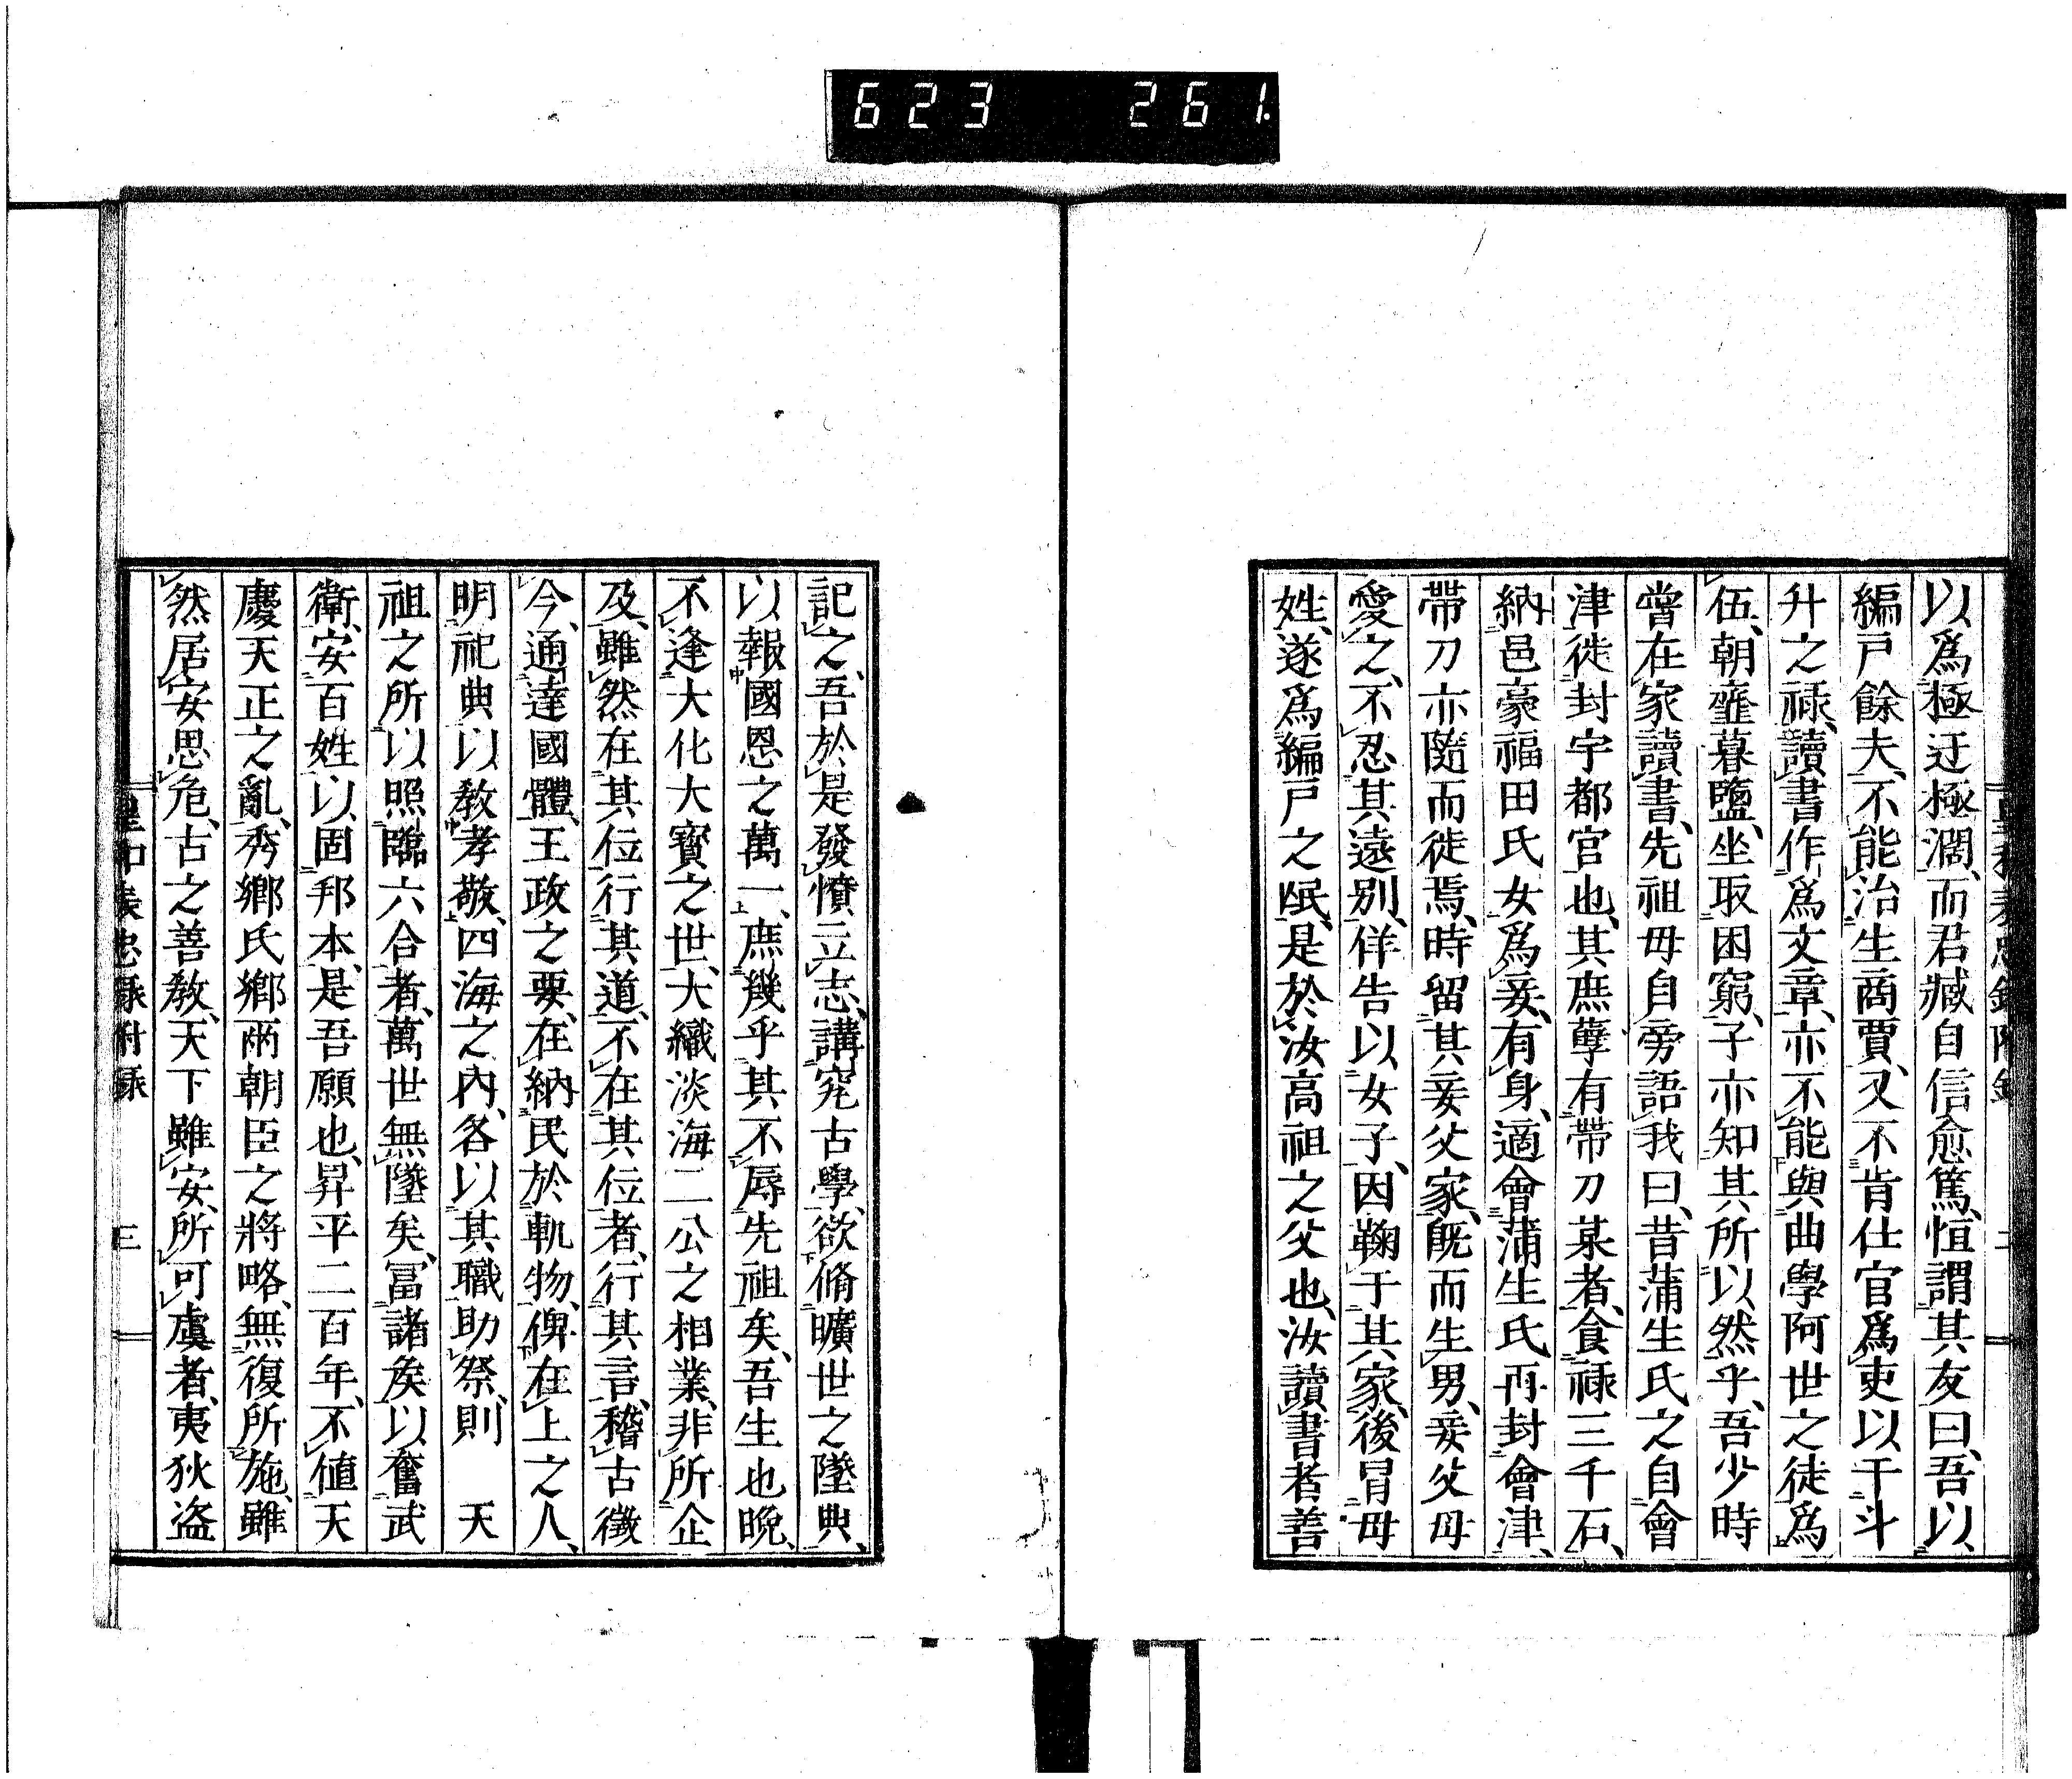 623 261.
以爲極迂極濶、而君臧自信愈篤、恒謂其友曰、吾以
編戸餘夫、不能治生商賈、又不肯仕官爲吏以干斗
升之禄、讀書作爲文章、亦不能與曲學阿世之徒爲
伍、朝虀暮鹽、坐取困窮、子亦知其所以然乎、吾少時
甞在家讀書、先祖母自旁語我曰、昔蒲生氏之自會
津徙封宇都宮也、其庶孽有帶刀某者、食禄三千石、
納邑豪福田氏女爲妾、有身、適會蒲生氏再封會津、
帶刀亦隨而徙焉、時留其妾父家、旣而生男、妾父母
愛之、不忍其遠別、佯告以女子、因鞠于其家、後冒母
姓、遂爲編戸之氓、是於汝高祖之父也、汝讀書者善
記之、吾於是發憤立志、講究古學、欲脩曠世之墜典、
以報國恩之萬一、庶幾乎其不辱先祖矣、吾生也晩、
不逢大化大寳之世、大織淡海二公之相業、非所企
及、雖然在其位行其道、不在其位者、行其言、稽古徵
今、通達國體、王政之要、在納民於軌物、俾在上之人、
明祀典以敎孝敬、四海之內、各以其職助祭、則 天
祖之所以照臨六合者、萬世無墜矣、冨諸矦以奮武
衛、安百姓以固邦本、是吾願也、昇平二百年、不値天
慶天正之亂、秀鄕氏鄕兩朝臣之將略、無復所施、雖
然居安思危、古之善敎、天下雖安、所可虞者、夷狄盜
三